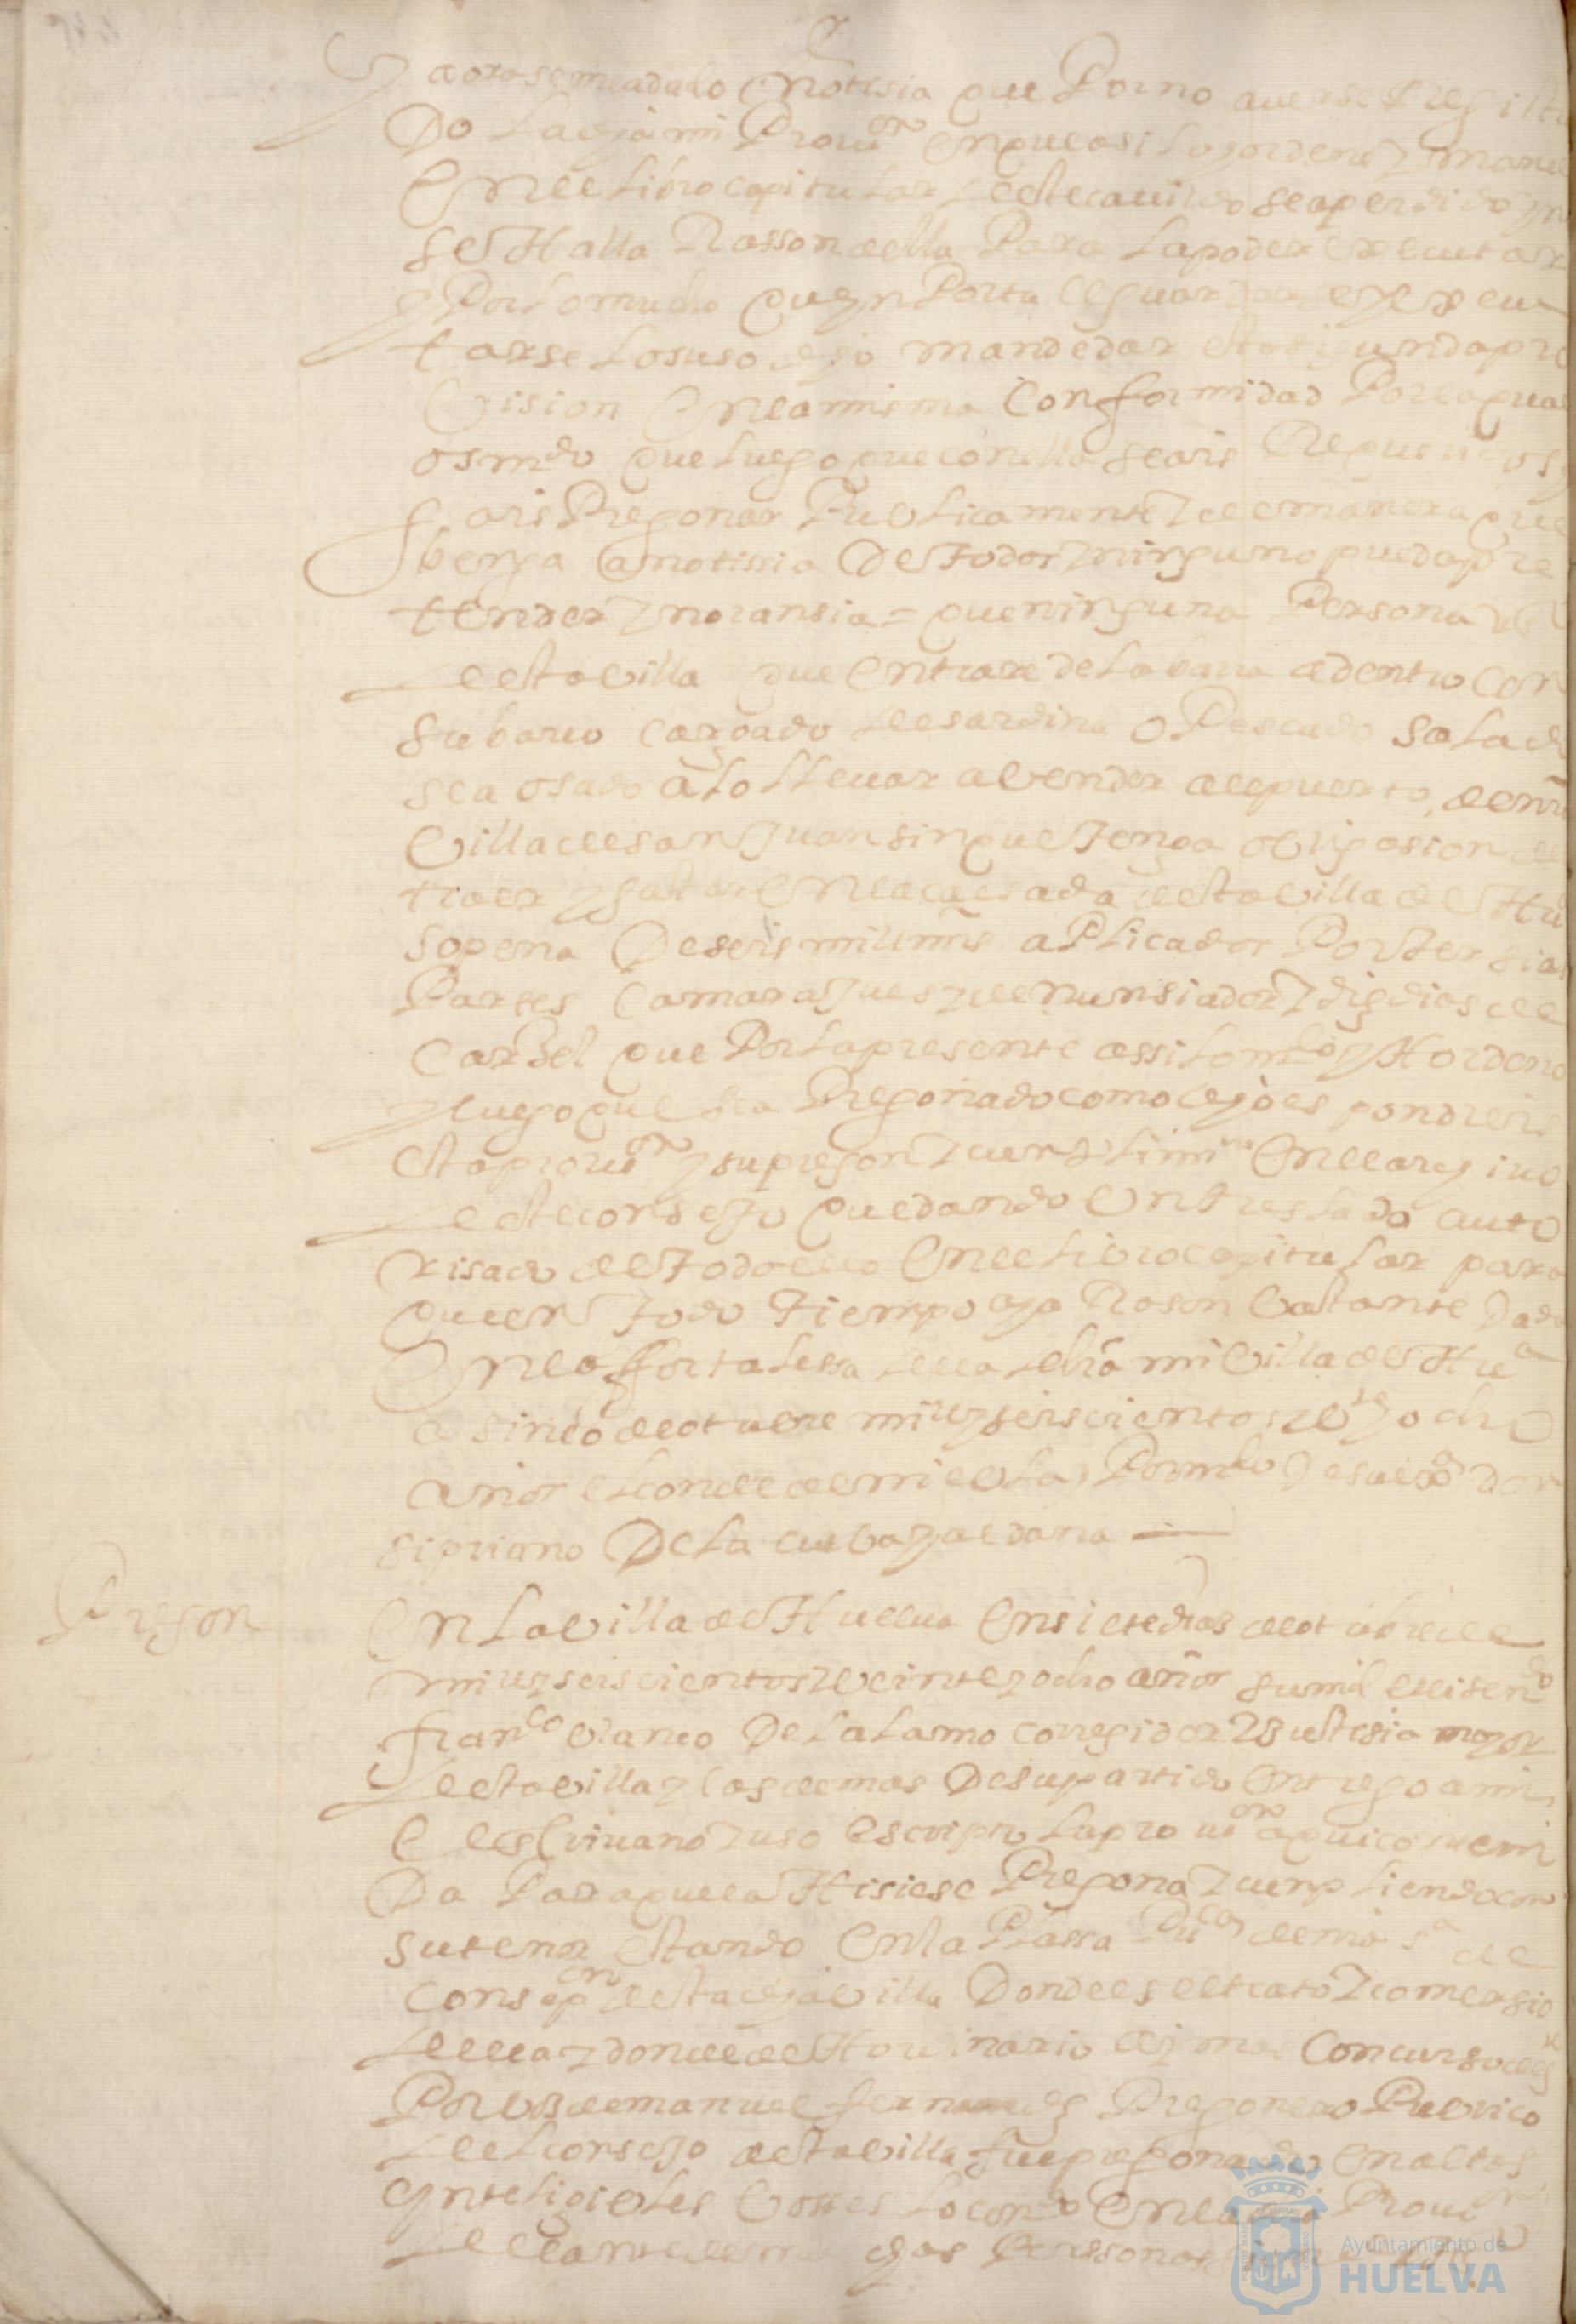 Y aora se me a dado notisia que Por no auerse Regista
Do La dha mi Prouion en que asi Lo hordene y mande
en el Libro capitular deste cauildo se a perdido y no
se Halla Rasson della Para La poder executar
y Por Lo mucho que ynPorta el guardarse y execu
tarse Lo suso dho mande dar esta segunda pro
Vision en la misma Conformidad Por la qual
os mdo que Luego que con ella seais Requeridos
hagais Pregonar Publicamente de manera que
benga a notissia De todos y ninguno pueda pre
tender ynoransia = que ninguna Persona vsº
desta villa que entrare de La barra adentro con
su barco cargado de sardina o Pescado salado
sea osado a Lo LLeuar a vender al puerto de mi
Villa de san Juan sin que tenga obligasion de
traer y en la calsada desta villa de Hua
so pena De seis mill mrs aplicados Por tersias
Partes Camara Jues y denunsiador y dies dias de
Carsel que Por La presente assi Lo mdo y Hordeno
y luego que sea Pregonado como dho es pondreis
esta prouion y su pregon y cumplimito en el archiuo
deste conséjo quedando vn treslado auto
risado de todo ello en el Libro capitular para
que en todo Tiempo aya Rason bastante Dada
En La fortalessa de la dha mi Villa de Hua
a sinco de otubre mill y seiscientos y vte y ocho
años el conde de niebla Por mdo De su exa Don
sipriano De La cueba y aldana —
Pregon
En La villa de Huelua en siete dias de otubre de
mill y seiscientos y veinte y ocho años su md el lisendo
franco blanco De La Lamo corregidor y Justisia mayor
desta villa y Las demas De su partido entrego a mi
el escriuano yuso escripto La prouion aqui conteni
Da Para que La Hisiese Pregonar y cumpliendo con
su tenor estando en la PLassa Puca de nra sa de
consepon desta dha villa Donde es el trato y comersio
della y donde de Hordinario ay mas Concurso de ge
Por vos de manuel fernandes Pregonero Publico
del consejo desta villa fue pregonado en altas
e ynteligibles bosses Lo contdo en La dha Prouion
delante de muchas Perssonas
Ayuntamiento de
HUELVA